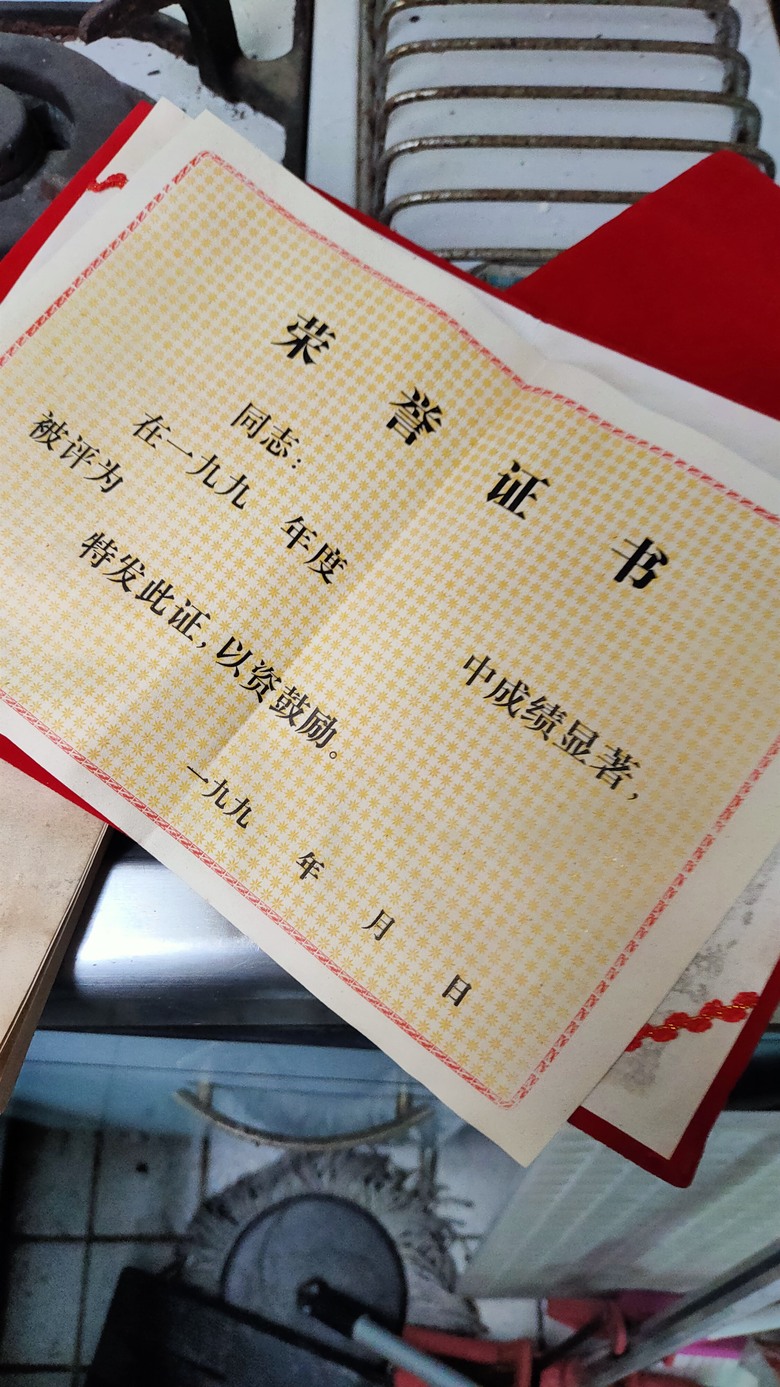 荣誉证书
同志：
在一九九 年度 中成绩显著，
被评为
特发此证，以资鼓励。
一九九 年 月 日